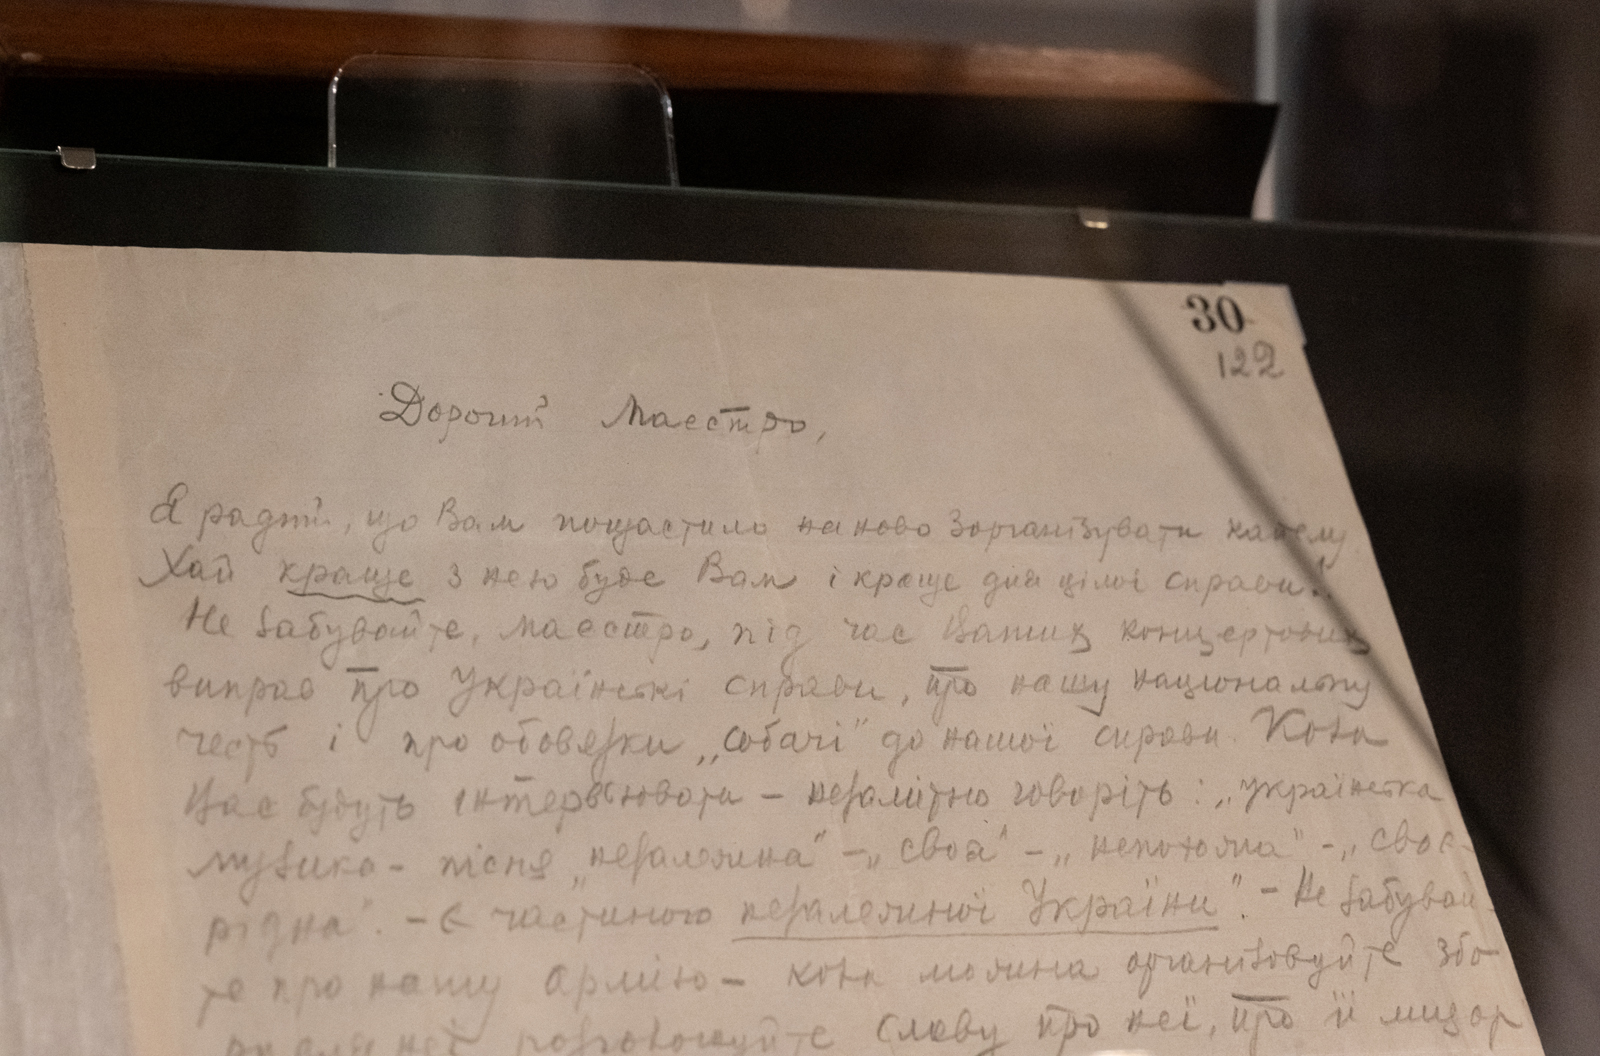 30
122
Дорогий Маестро,
Я радий, що Вам пощастило наново зорганізувати капелу
Хай краще з нею буде Вам і краще для цілої справи!
Не забувайте, маестро, під час Ваших концертових
виправ про Українські справи, про нашу національну
честь і про обовязки „собачі" до нашої справи. Коли
Вас будуть інтервювати – незамітно говоріть: „українська
музика – пісня „незалежна" – „своя" – „непохожа" – „своє-
рідна". – Є частиною незалежної України". – Не забувай-
те про нашу армію – коли можна організовуйте збо-
розголошуйте славу про неї, про її